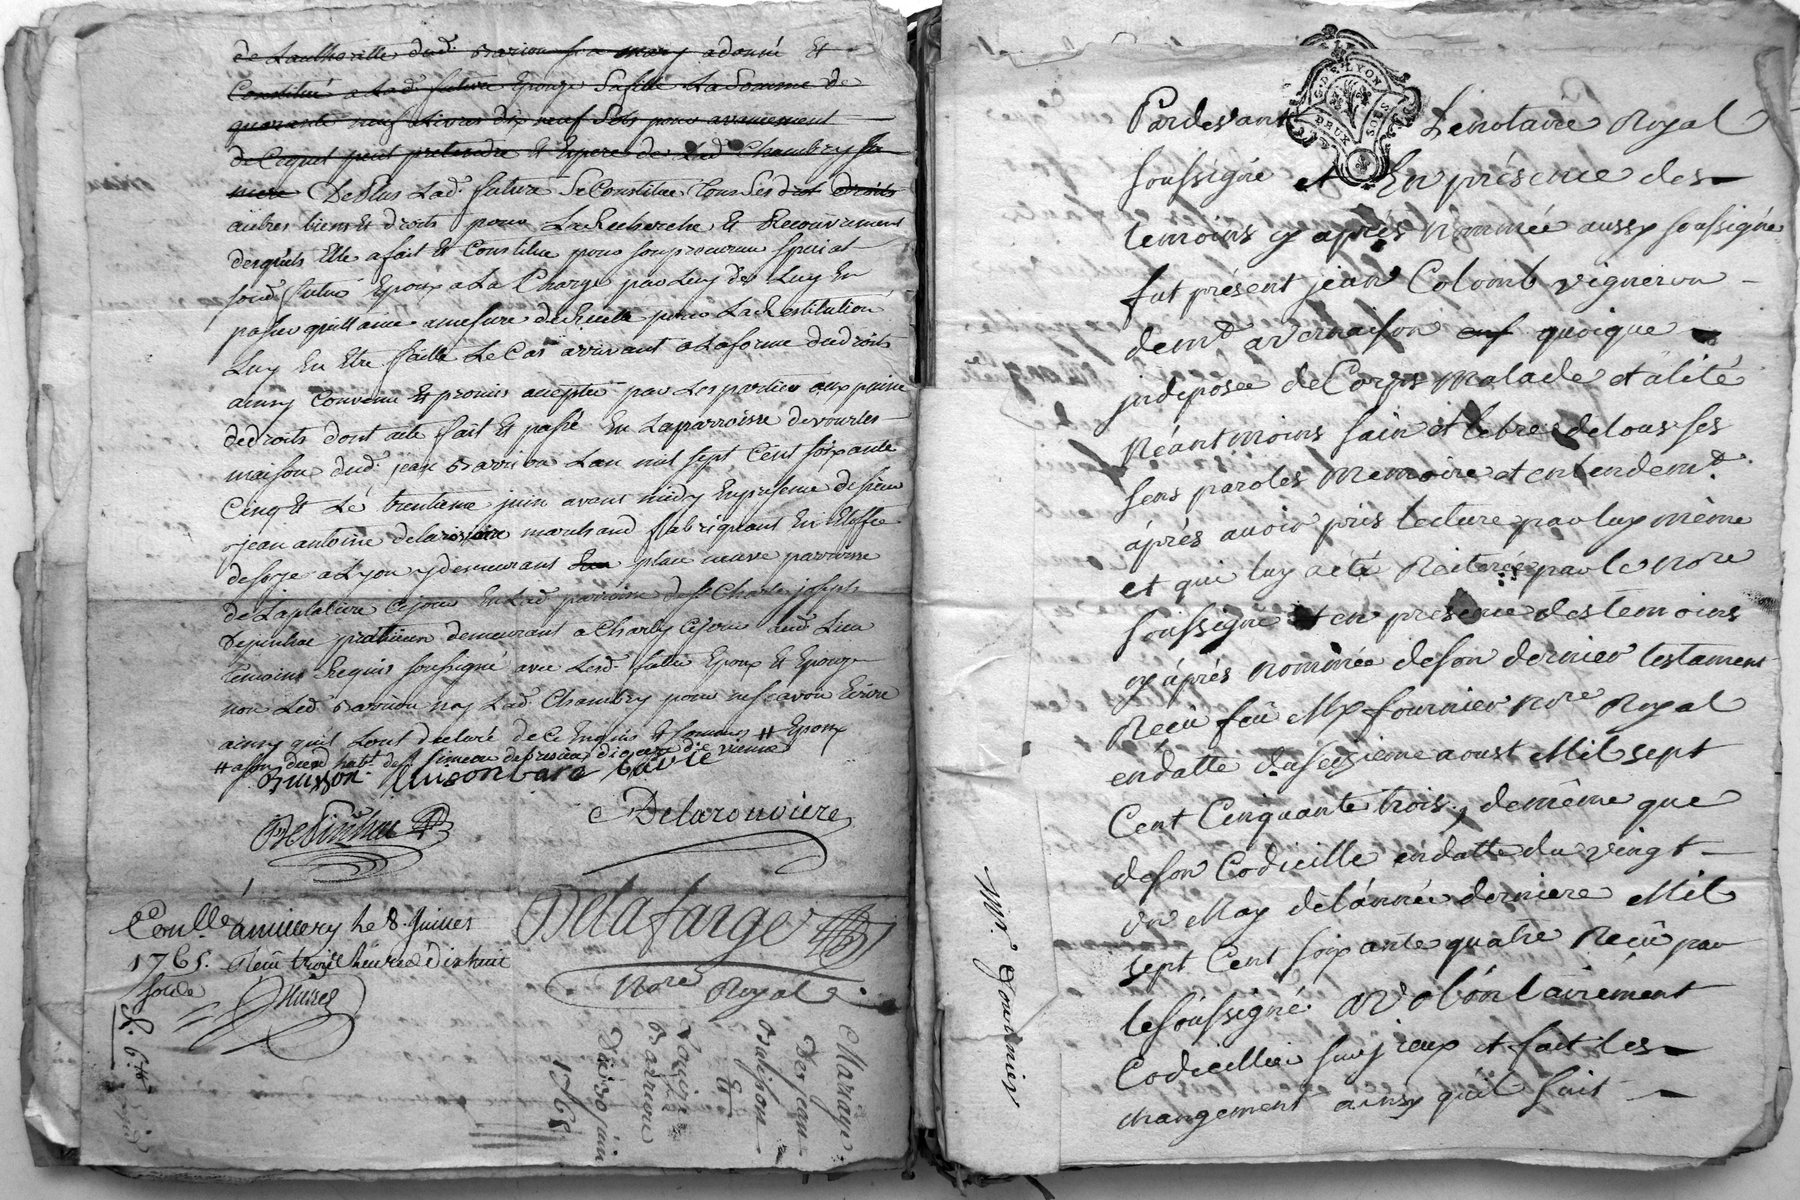 de Laditte ville dud. Barriou sa mary a donné Et
Constitué a Lad. future Epouze Safille La Somme de
quarante neuf Livres dix neuf Sols pour avancement
de Cequel peut pretendre Et Espere de Lad. Chambry sa
mere DePlus Lad. future SeConstitue tous Ses droits
autres biens Et droits pour LaRecherche Et Recouvrement
desquels Elle a fait Et Constitue pour son procureur special
Led. futur Epoux a La Charge par Luy de Luy En
passer quittance amesure de Recette pour La Restitution
Luy En Etre faitte Le Cas arrivant a Laforme du droits
ainsy Convenu Et promis accepté par Les parties aux peine
de droits dont acte fait Et passé En Laparroisse de vourles
maison dud. jean Barriou Lan mil sept Cent soixante
Cinq Et Le trentieme juin avant midy En presence de sieur
jean antoine delarouviere marchand fabriquant En Etoffe
desoye a Lyon y demeurant place neuve parroisse
de Laplatiere Cejour En Lad. parroisse de Sr Charles joseph
Depinhac praticien demeurant a Charly Cejour aud. Lieu
temoins Requis soussigné avec Lesd. futur Epoux Et Epouze
non Led. Barriou ny Lad. Chambry pour ne sçavoir Ecrire
ainsy quils Lont declaré de Ce Enquis Et Sommés # Epoux
Buisson
Delarouviere
Delafarge
Nore Royal
Conlle a millery le 8. Juillet
1765. Reçu trois livres dix huit
solde
Mariage
De jean
Buisson
Et
Louise
Barriou
Du 30 juin
1765
G. DE LYON
DEUX SOLS
Pardevant Le notaire Royal
soussigné et En présence des
temoins cy aprés Nommée aussy soussignée
fut présent jean Colomb vigneron
demt a vernaison quoique
indeposée de Corps Malade et alité
Néantmoins sain et Lebre de tous ses
sens paroles Memoire et entendemt
aprés avoir pris lecture par luy même
et qui luy a été Reiterée par le Nore
soussigné et en presence des temoins
cy aprés Nommée de son dernier testament
Reçu foü Me fournier Nore Royal
en datte du seizieme aoust Mil sept
Cent Cinquante trois, de même que
de son Codicille en datte du vingt
un May de lannée derniere Mil
sept Cent soixante quatre Reçu par
le soussigné a volontairement
Codicillier sur jceux et fait les
changement ainsy qüil suit
Me fournier